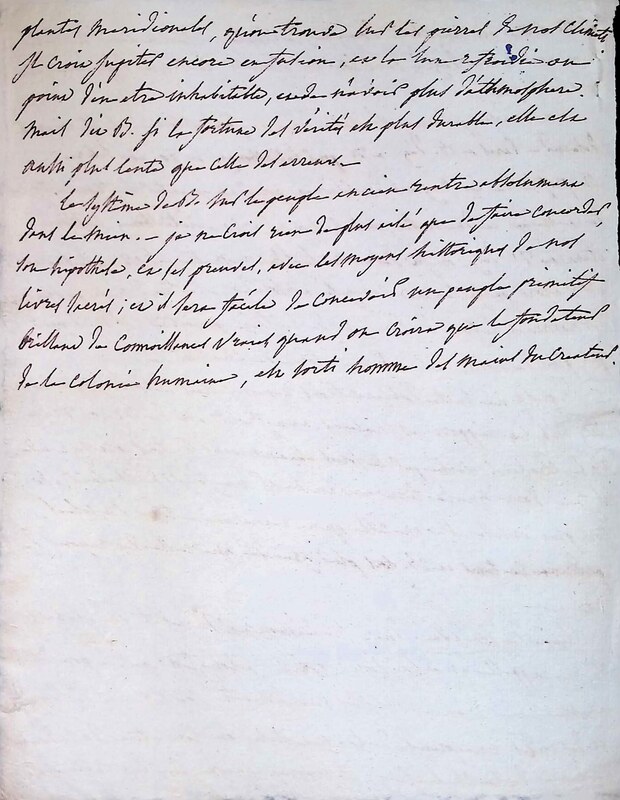 plantes meridionales, qu'on trouve sur les pierres de nos climats.
Il croit Jupiter encore en fusion, et la lune refroidie au
point d'en etre inhabitable, et de n'avoir plus d'athmosphere.
mais dit B. si la fortune des verités est plus durable, elle est
aussi plus lente que celle des erreurs. –
Le systême de B. sur le peuple ancien rentre absolument
dans le mien. – je ne crois rien de plus aisé que de faire concorder
son hipothese, et ses preuves, avec les moyens historiques de nos
livres sacrés ; et il sera facile de concevoir un peuple primitif
brillant de connoissances vraies quand on croira que le fondateur
de la colonie humaine, est sorti homme des mains du Createur.